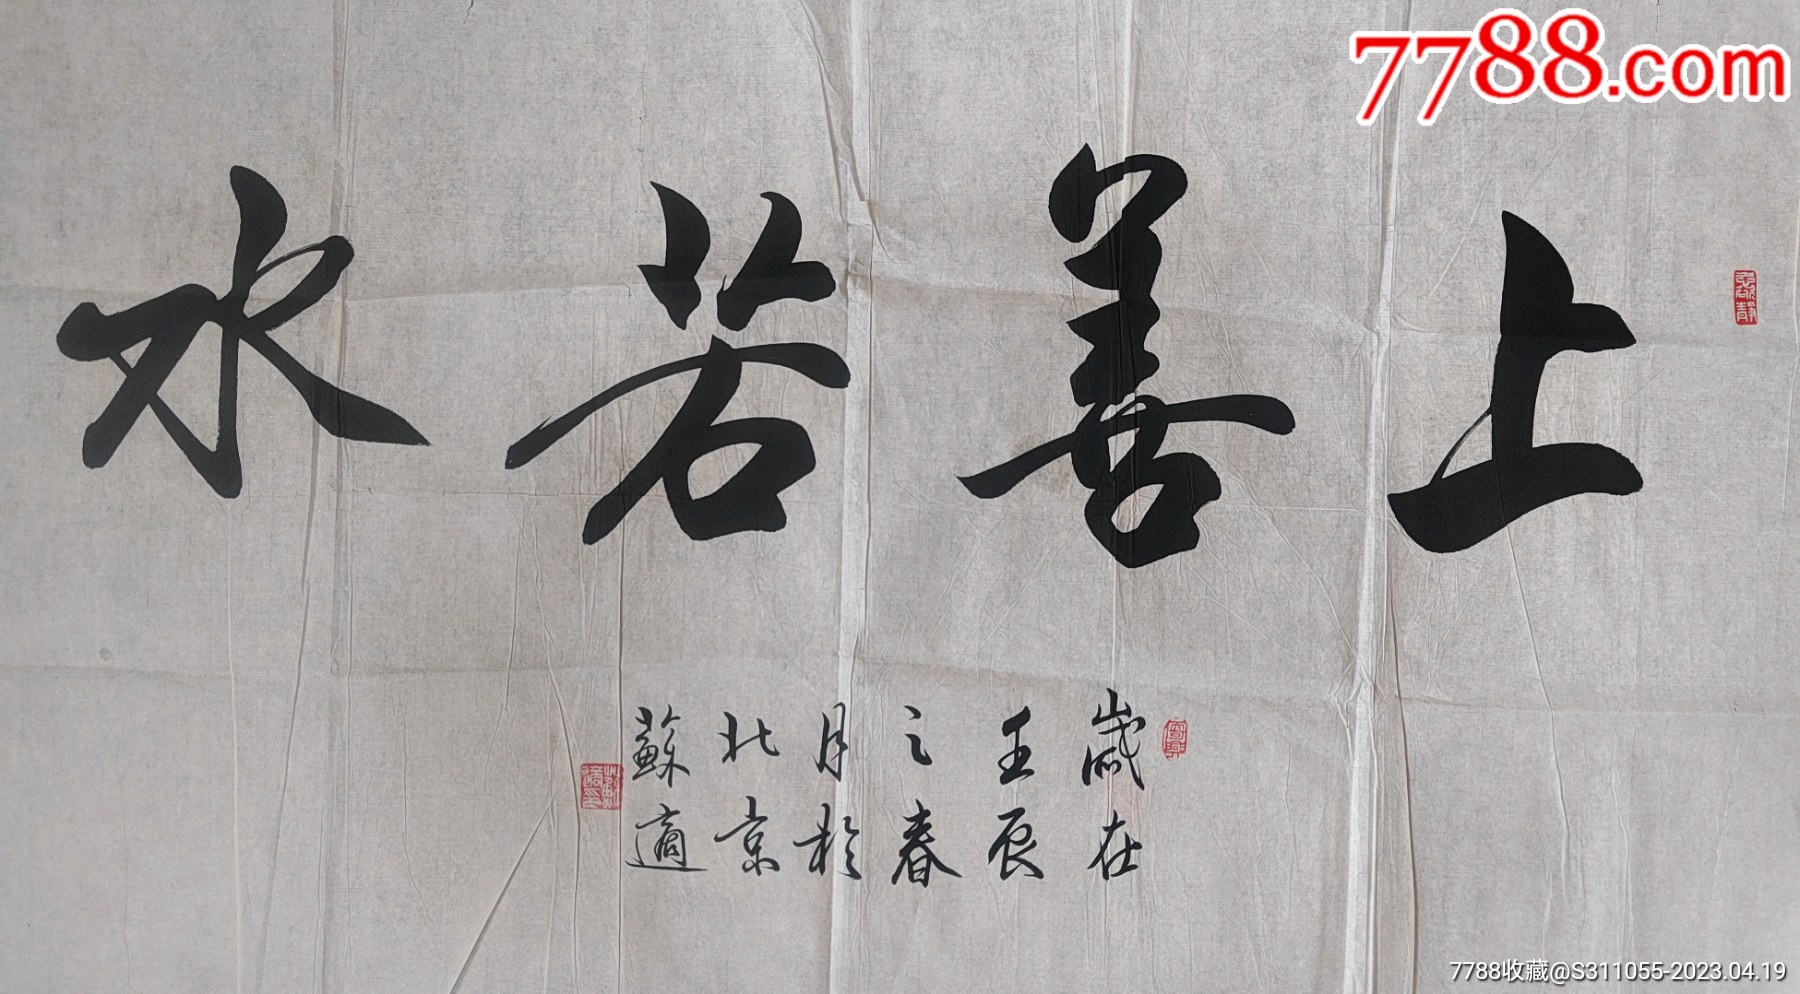 7788.com
上善若水
歲在
壬辰
之春
月於
北京
蘇適
7788收藏@S311055-2023.04.19